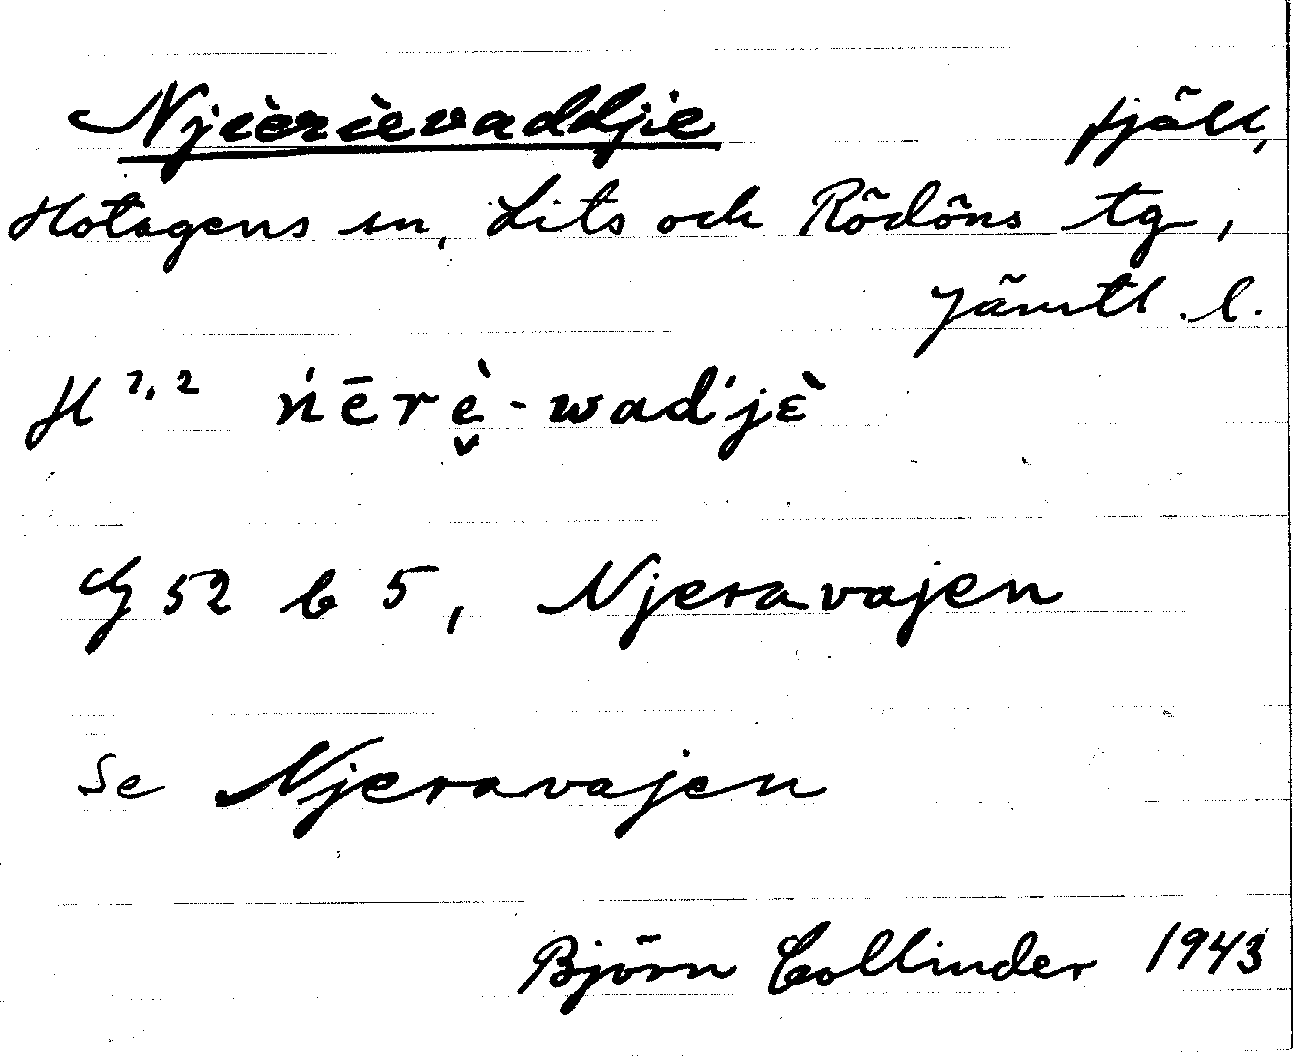 Njierievaddjie fjäll,
Hotagens sn, Lits och Rödöns tg,
Jämtl. l.
H 1, 2 ńērè̬-wad'jὲ
G 52 b 5, Njeravajen
Se Njeravajen
Björn Collinder 1943